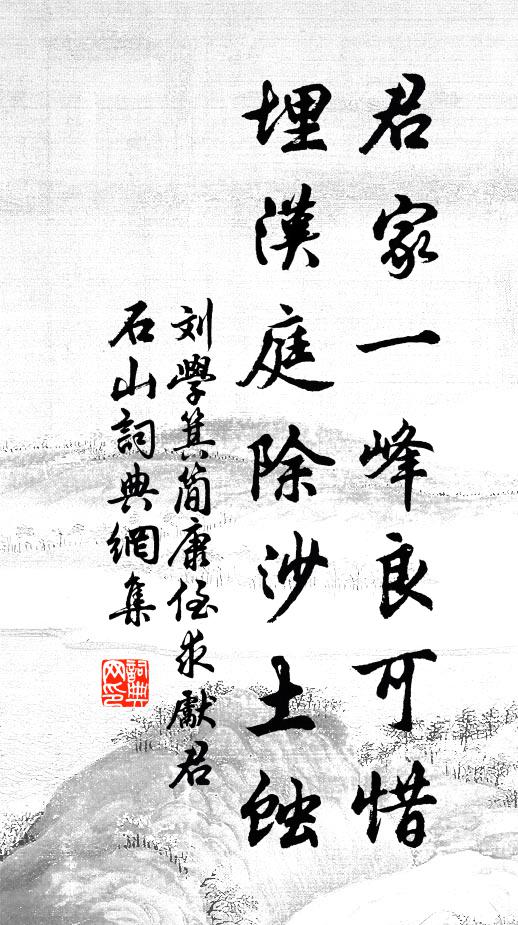 君家一峰良可惜
埋漠庭除沙土蝕
刘學箕簡康侄求獻君
石山詞典網集
詞典
网